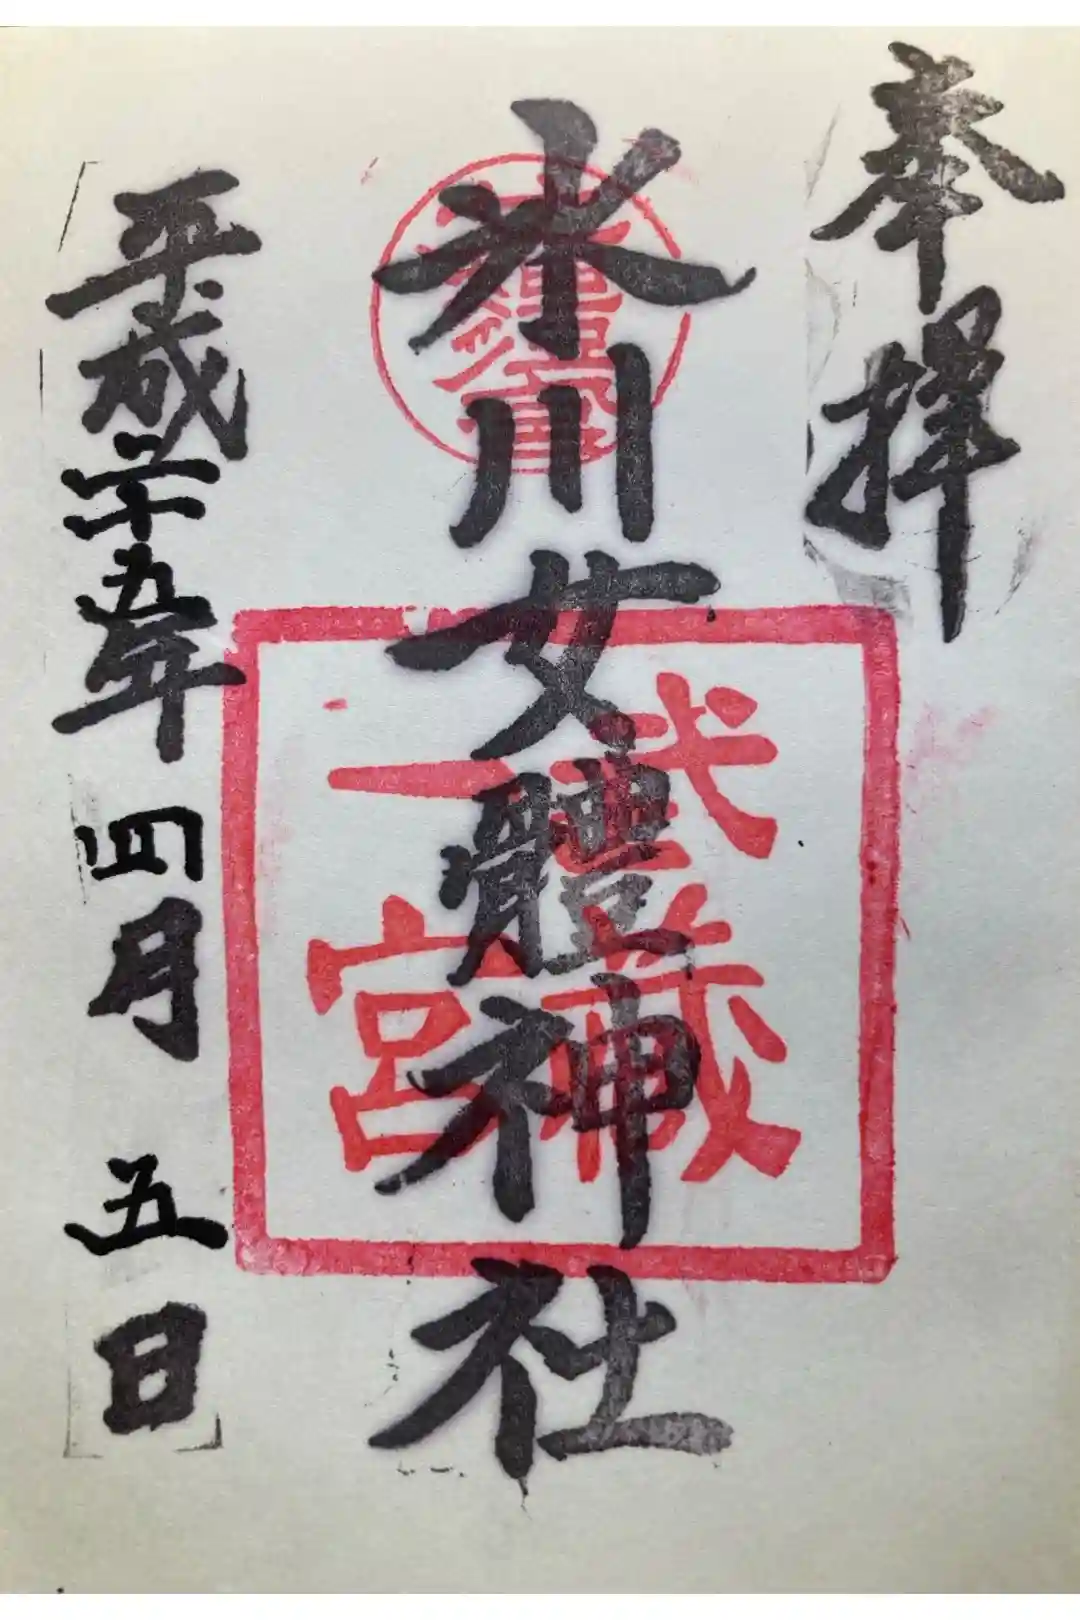 奉拝
氷川女體神社
武蔵
一宮
平成二十五年四月五日